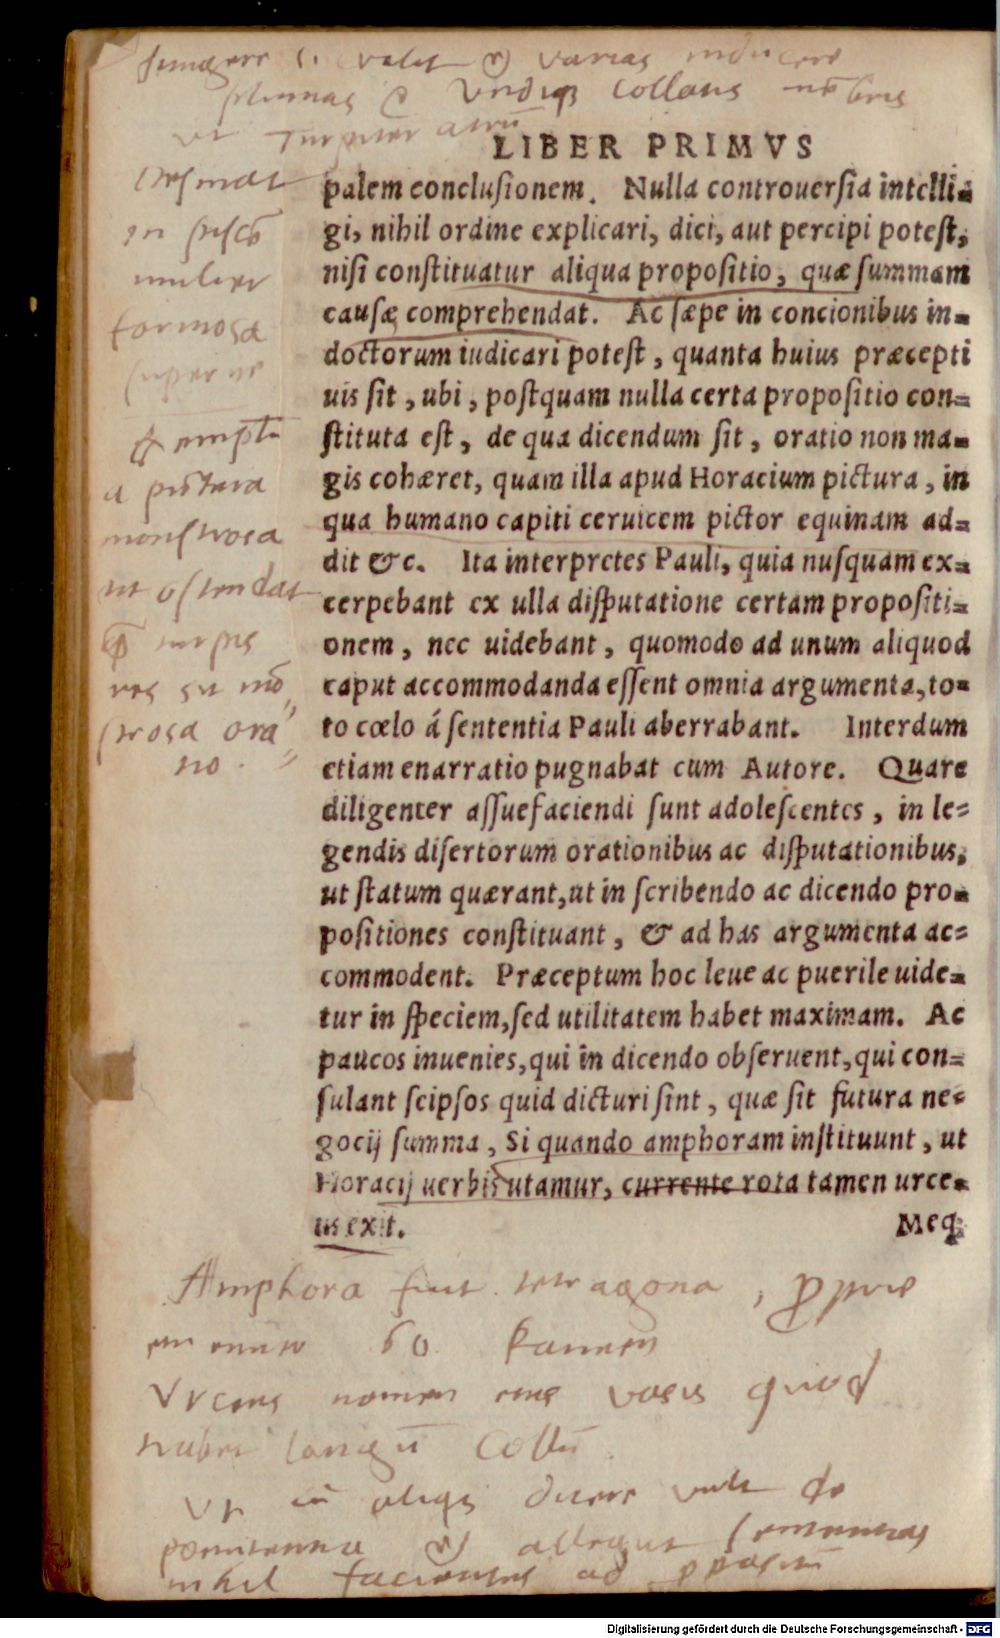 Iungere si velit et varias inducere
plumas undiq collatis
ut turpiter atrū
LIBER PRIMVS
desinat
in piscē
mulier
formosa
superne
exemplū
a pictura
monstrosa
ut ostendat
turpis
res sit mō
strosa ora
tio
palem conclusionem. Nulla controuersia intelli-
gi, nihil ordine explicari, dici, aut percipi potest,
nisi constituatur aliqua propositio, quæ summam
causæ comprehendat. Ac sæpe in concionibus in-
doctorum iudicari potest, quanta huius præcepti
uis sit, ubi, postquam nulla certa propositio con-
stituta est, de qua dicendum sit, oratio non ma-
gis cohæret, quam illa apud Horacium pictura, in
qua humano capiti ceruicem pictor equinam ad-
dit &c. Ita interpretes Pauli, quia nusquam ex-
cerpebant ex ulla disputatione certam propositi-
onem, nec uidebant, quomodo ad unum aliquod
caput accommodanda essent omnia argumenta, to-
to cœlo á sententia Pauli aberrabant. Interdum
etiam enarratio pugnabat cum Autore. Quare
diligenter assuefaciendi sunt adolescentes, in le-
gendis disertorum orationibus ac disputationibus,
ut statum quærant, ut in scribendo ac dicendo pro-
positiones constituant, & ad has argumenta ac-
commodent. Præceptum hoc leue ac puerile uide-
tur in speciem, sed utilitatem habet maximam. Ac
paucos inuenies, qui in dicendo obseruent, qui con-
sulant seipsos quid dicturi sint, quæ sit futura ne-
gocij summa, Si quando amphoram instituunt, ut
Horacij uerbis utamur, currente rota tamen urce-
us exit.
Meq
Amphora fuit tetragona,
60 kannen
Urceus nomen vasis quod
habet longū collū
Ut cū aliqs dicere vult de
poenitentia et allegat sententias
nihil facientes ad ppositū
Digitalisierung gefördert durch die Deutsche Forschungsgemeinschaft - DFG